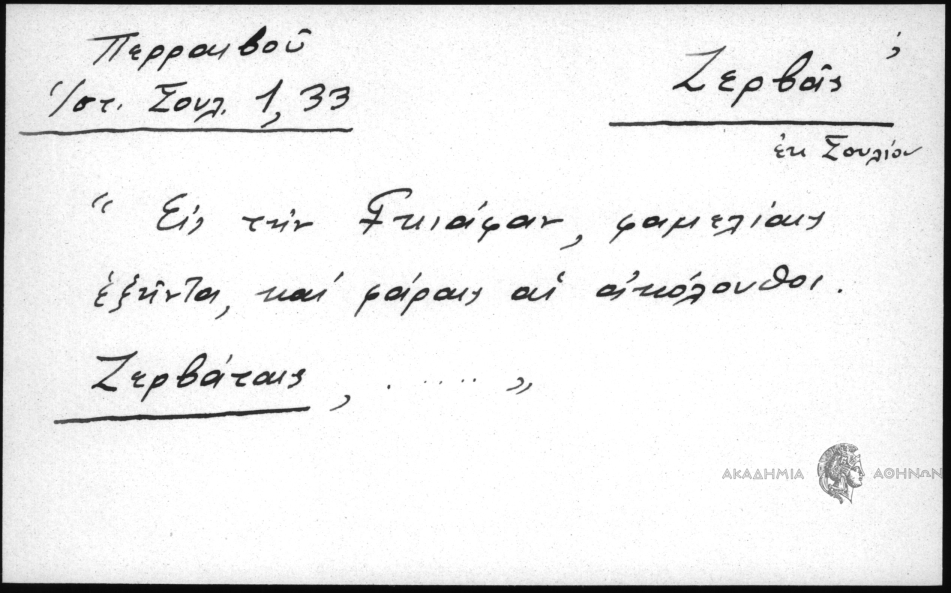 Περραιβοῦ
Ἱστ. Σουλ. 1, 33
Ζερβᾶς
ἐκ Σουλίου
“ Εἰς τὴν Γκιάφαν, φαμελίαις
ἑξῆντα, καὶ φάραις αἱ ἀκόλουθοι.
Ζερβάταις, . ..... „
ΑΚΑΔΗΜΙΑ ΑΘΗΝΩΝ